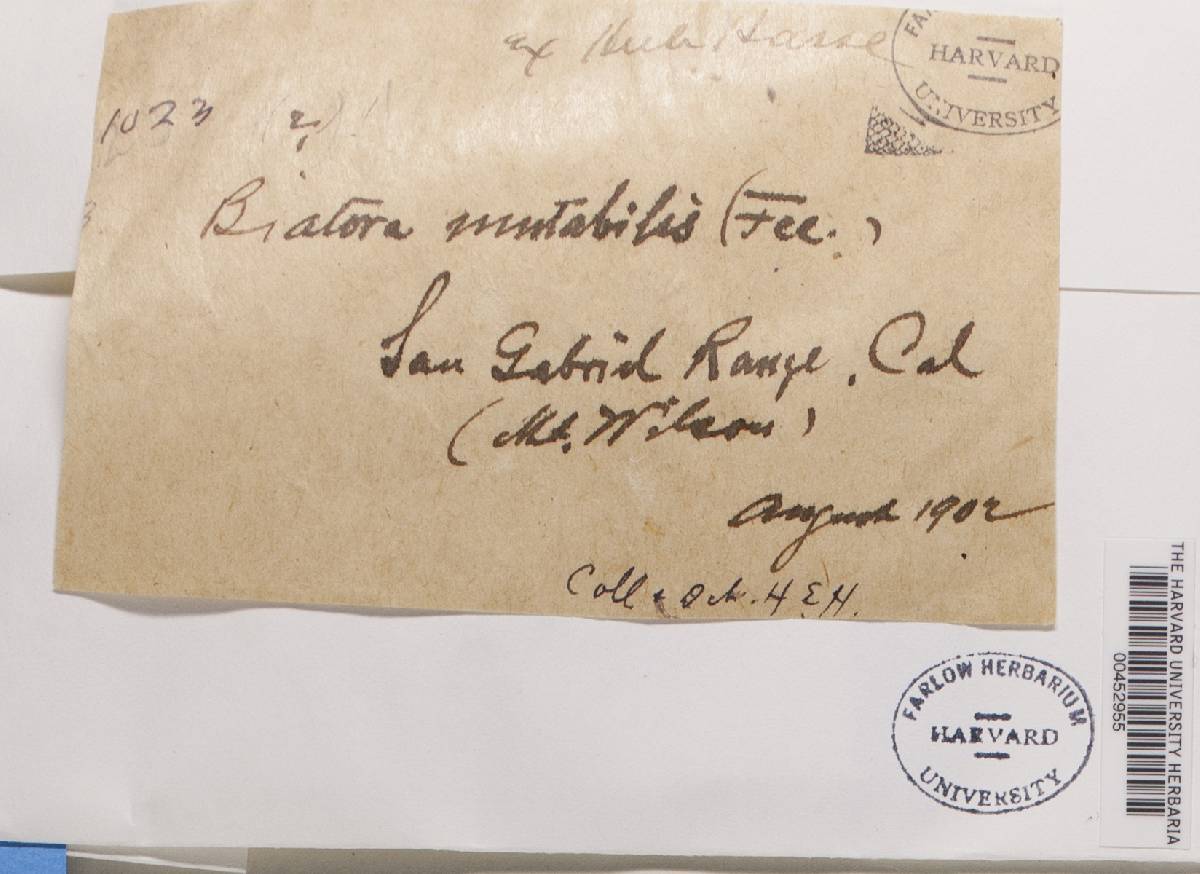 ex Herb Hasse
FARLOW
HARVARD
UNIVERSITY
1023 (2)
Biatora mutabilis (Fee.)
San Gabriel Range, Cal
(Mt. Wilson)
August 1902
Coll & Det. H E H.
FARLOW HERBARIUM
HARVARD
UNIVERSITY
THE HARVARD UNIVERSITY HERBARIA
00452955